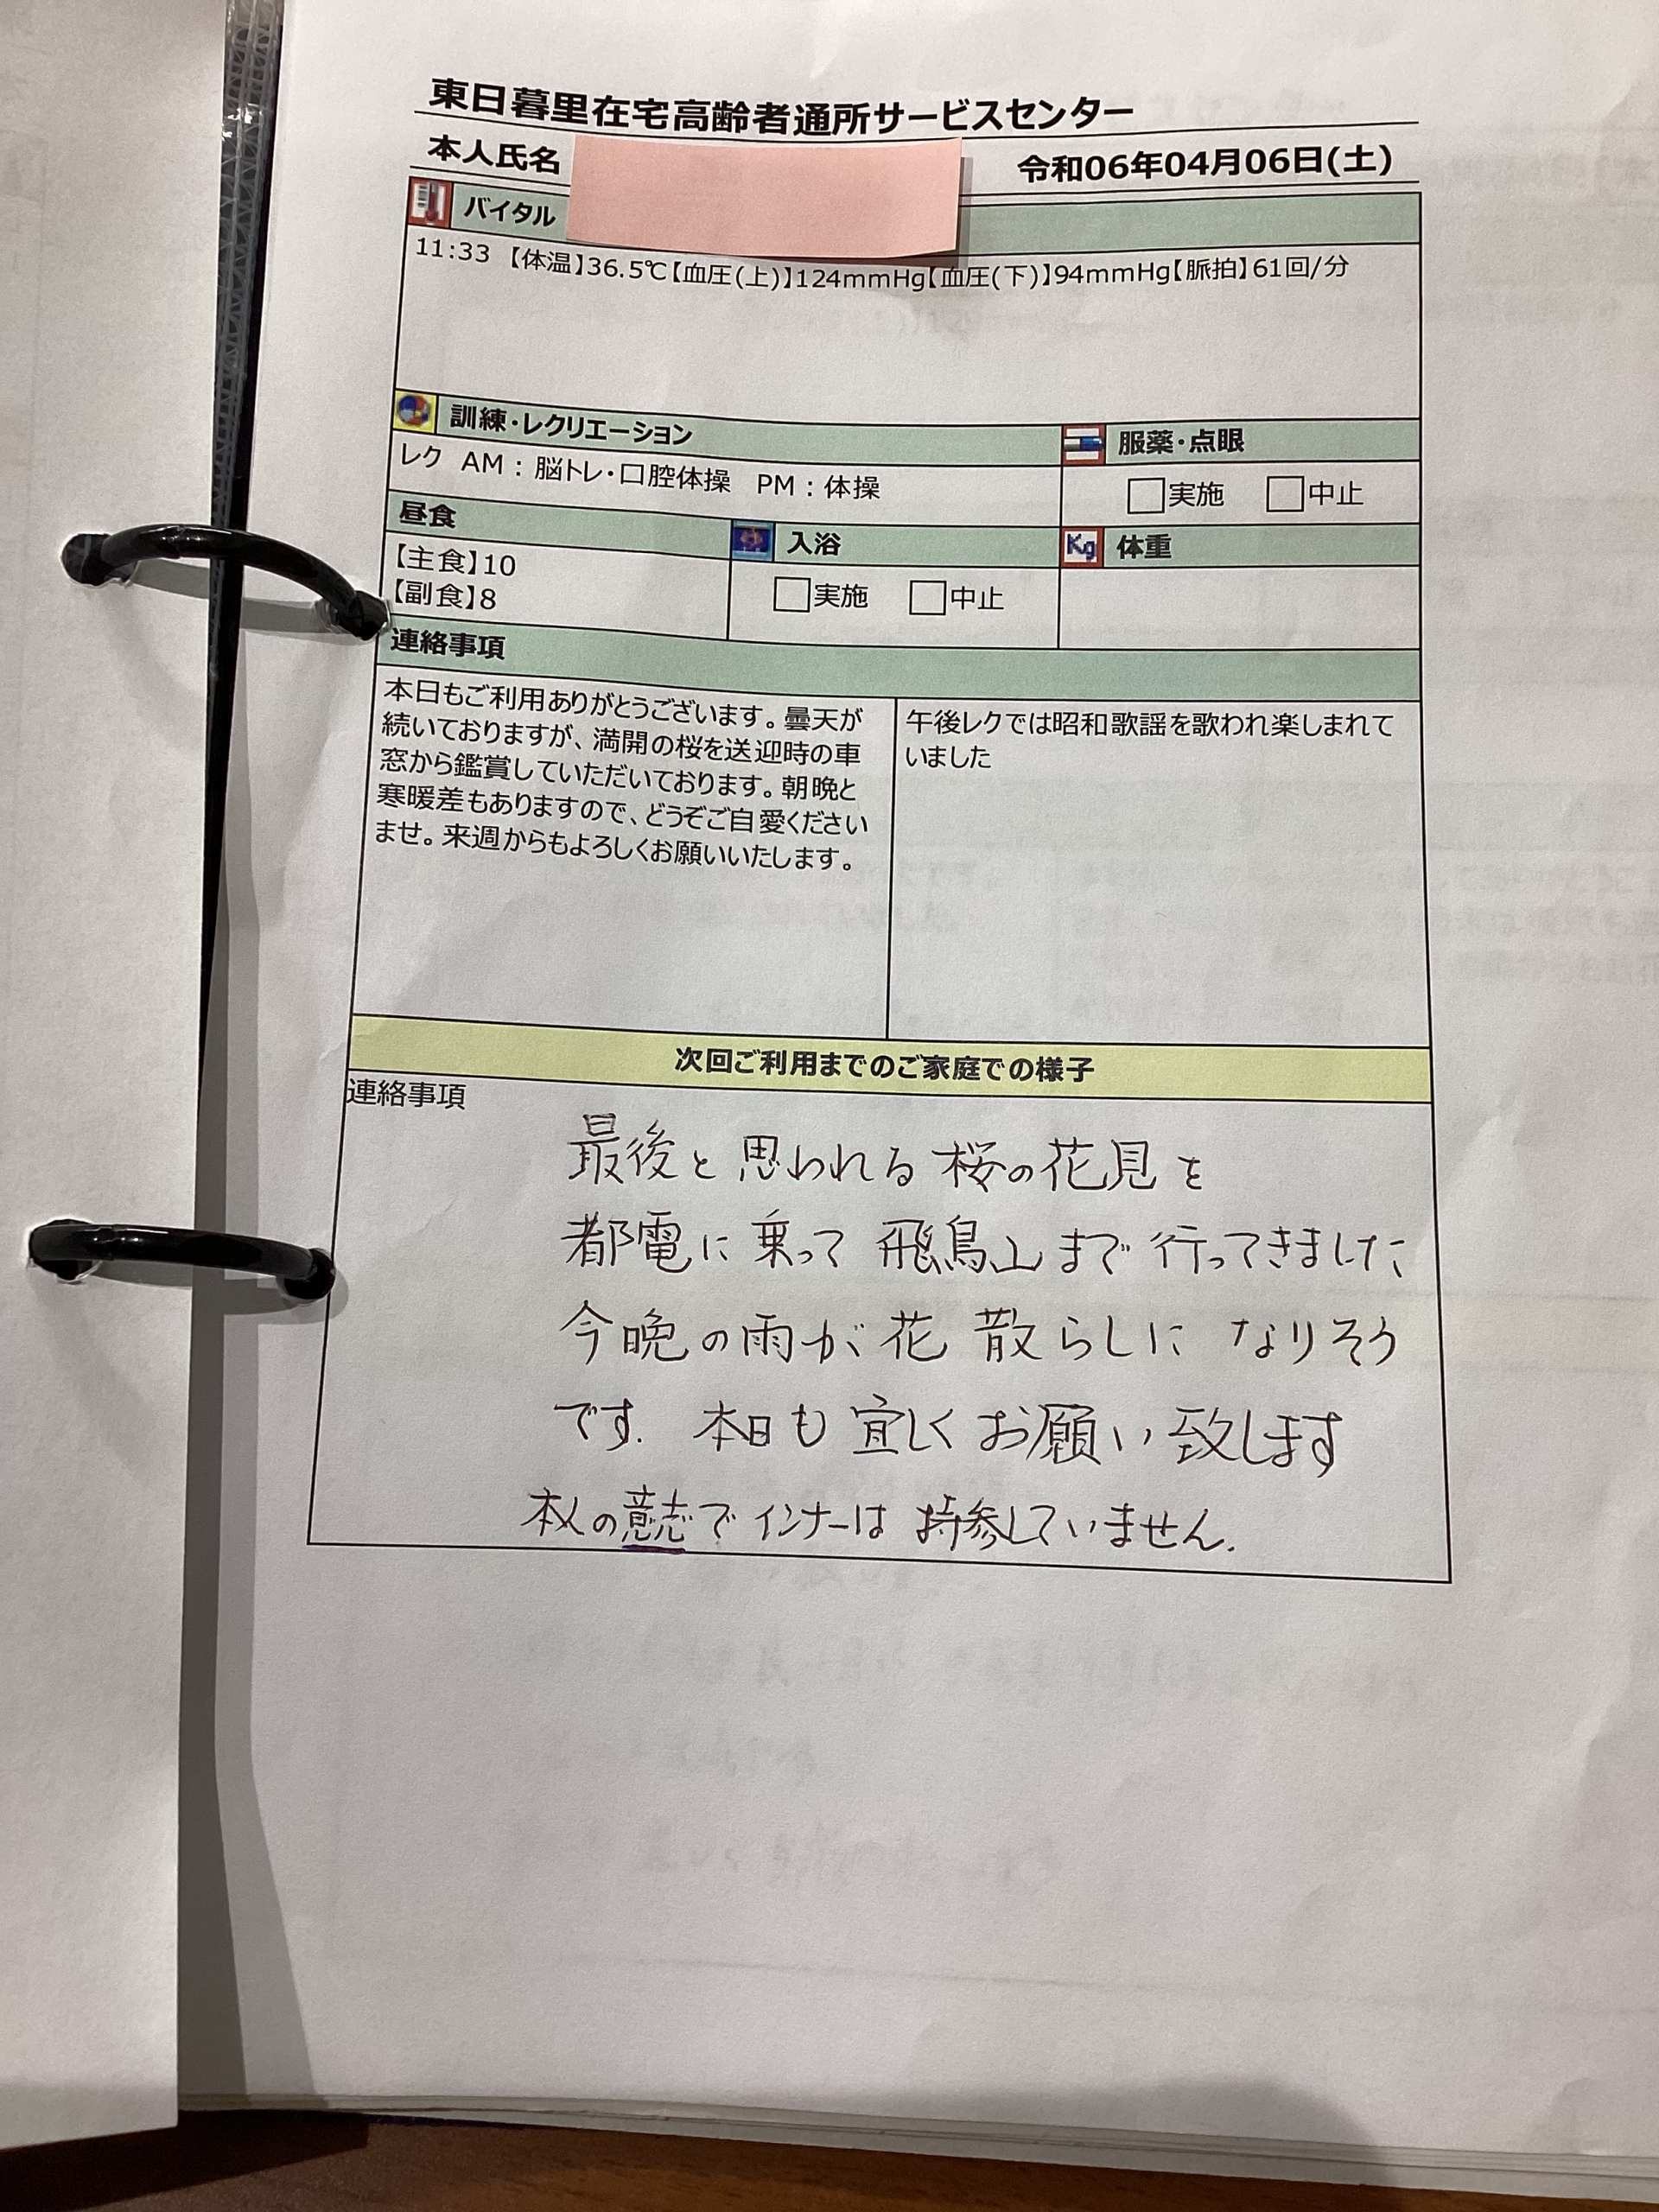 東日暮里在宅高齢者通所サービスセンター
本人氏名
令和06年04月06日(土)
バイタル
11:33 【体温】36.5℃【血圧(上)】124mmHg【血圧(下)】94mmHg【脈拍】61回/分
訓練・レクリエーション
服薬・点眼
レク AM：脳トレ・口腔体操 PM：体操
□実施 □中止
昼食
入浴
Kg 体重
【主食】10
【副食】8
□実施 □中止
連絡事項
本日もご利用ありがとうございます。曇天が
続いておりますが、満開の桜を送迎時の車
窓から鑑賞していただいております。朝晩と
寒暖差もありますので、どうぞご自愛ください
ませ。来週からもよろしくお願いいたします。
午後レクでは昭和歌謡を歌われ楽しまれて
いました
次回ご利用までのご家庭での様子
連絡事項
最後と思われる桜の花見を
都電に乗って飛鳥山まで行ってきました
今晩の雨が花散らしになりそう
です. 本日も宜しくお願い致します
本人の意志でインナーは持参していません.